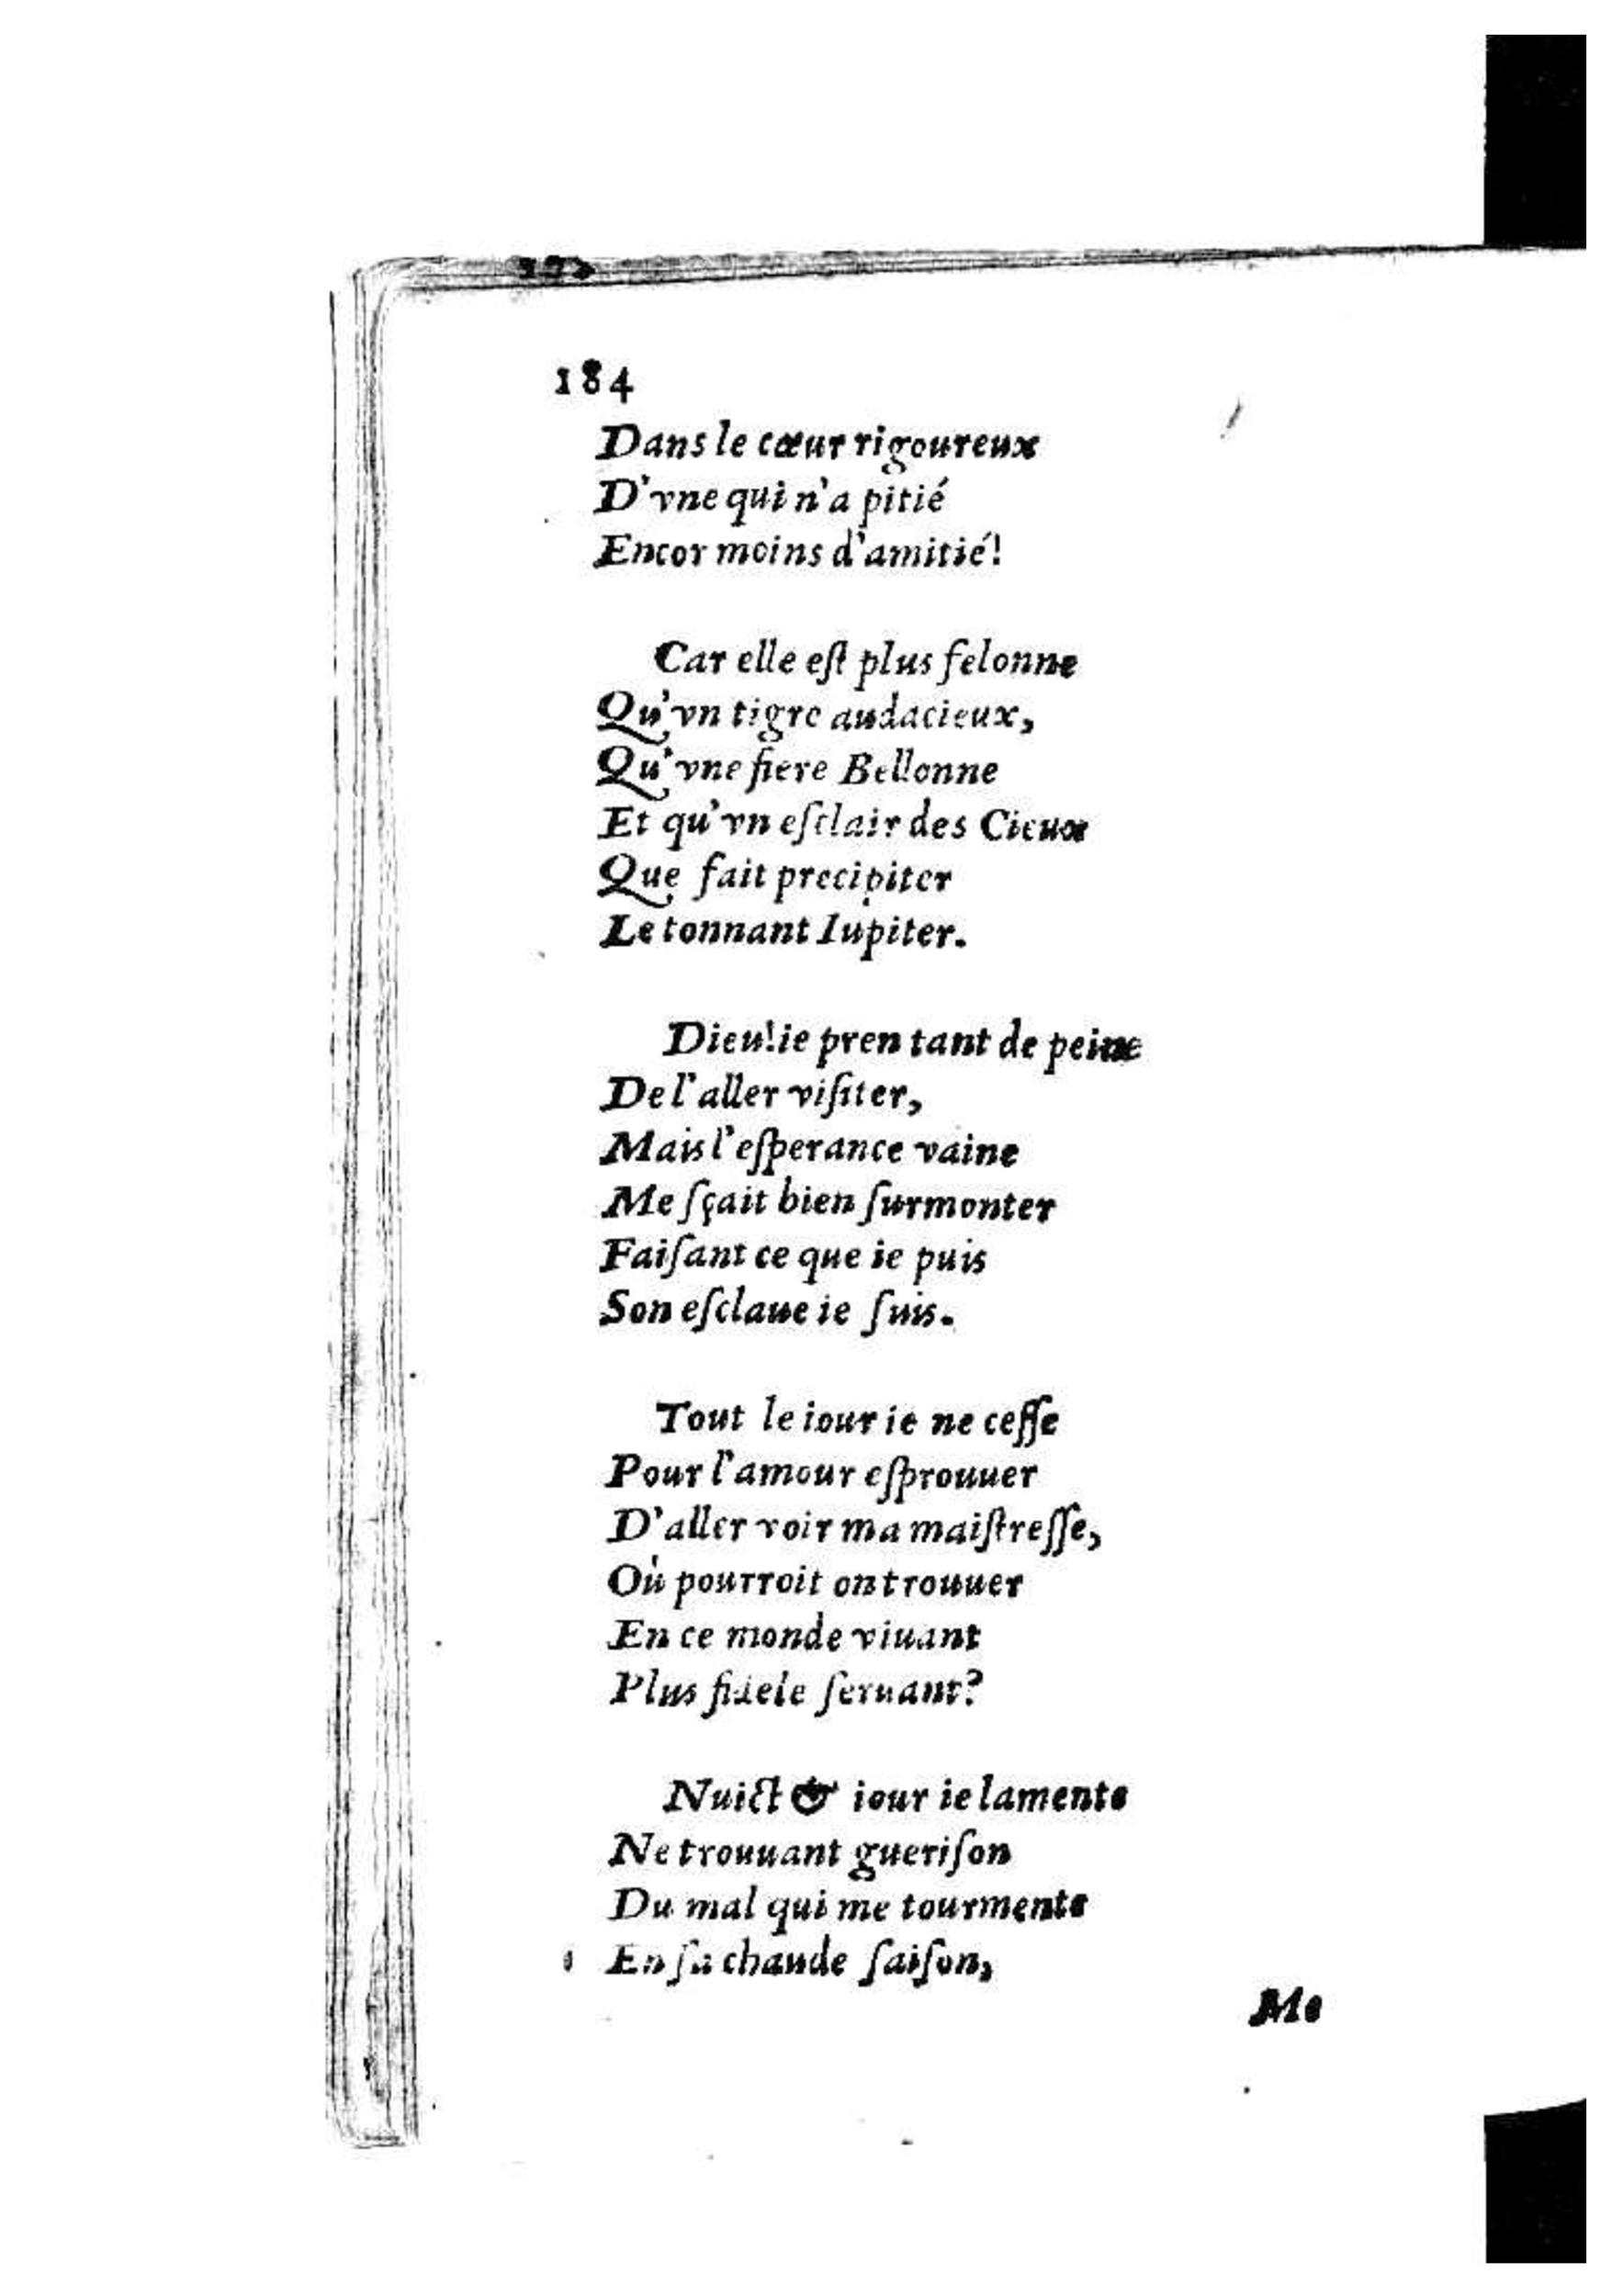 184
Dans le cœur rigoureux
D'vne qui n'a pitié
Encor moins d'amitié!
Car elle eſt plus felonne
Qu'vn tigre audacieux,
Qu'vne fiere Bellonne
Et qu'vn eſclair des Cieux
Que fait precipiter
Le tonnant Iupiter.
Dieu!ie pren tant de peine
De l'aller viſiter,
Mais l'eſperance vaine
Me ſçait bien ſurmonter
Faiſant ce que ie puis
Son eſclaue ie ſuis.
Tout le iour ie ne ceſſe
Pour l'amour eſprouuer
D'aller voir ma maiſtreſſe,
Où pourroit on trouuer
En ce monde viuant
Plus fidele ſeruant?
Nuict & iour ie lamente
Ne trouuant gueriſon
Du mal qui me tourmente
En ſa chaude ſaiſon,
Me